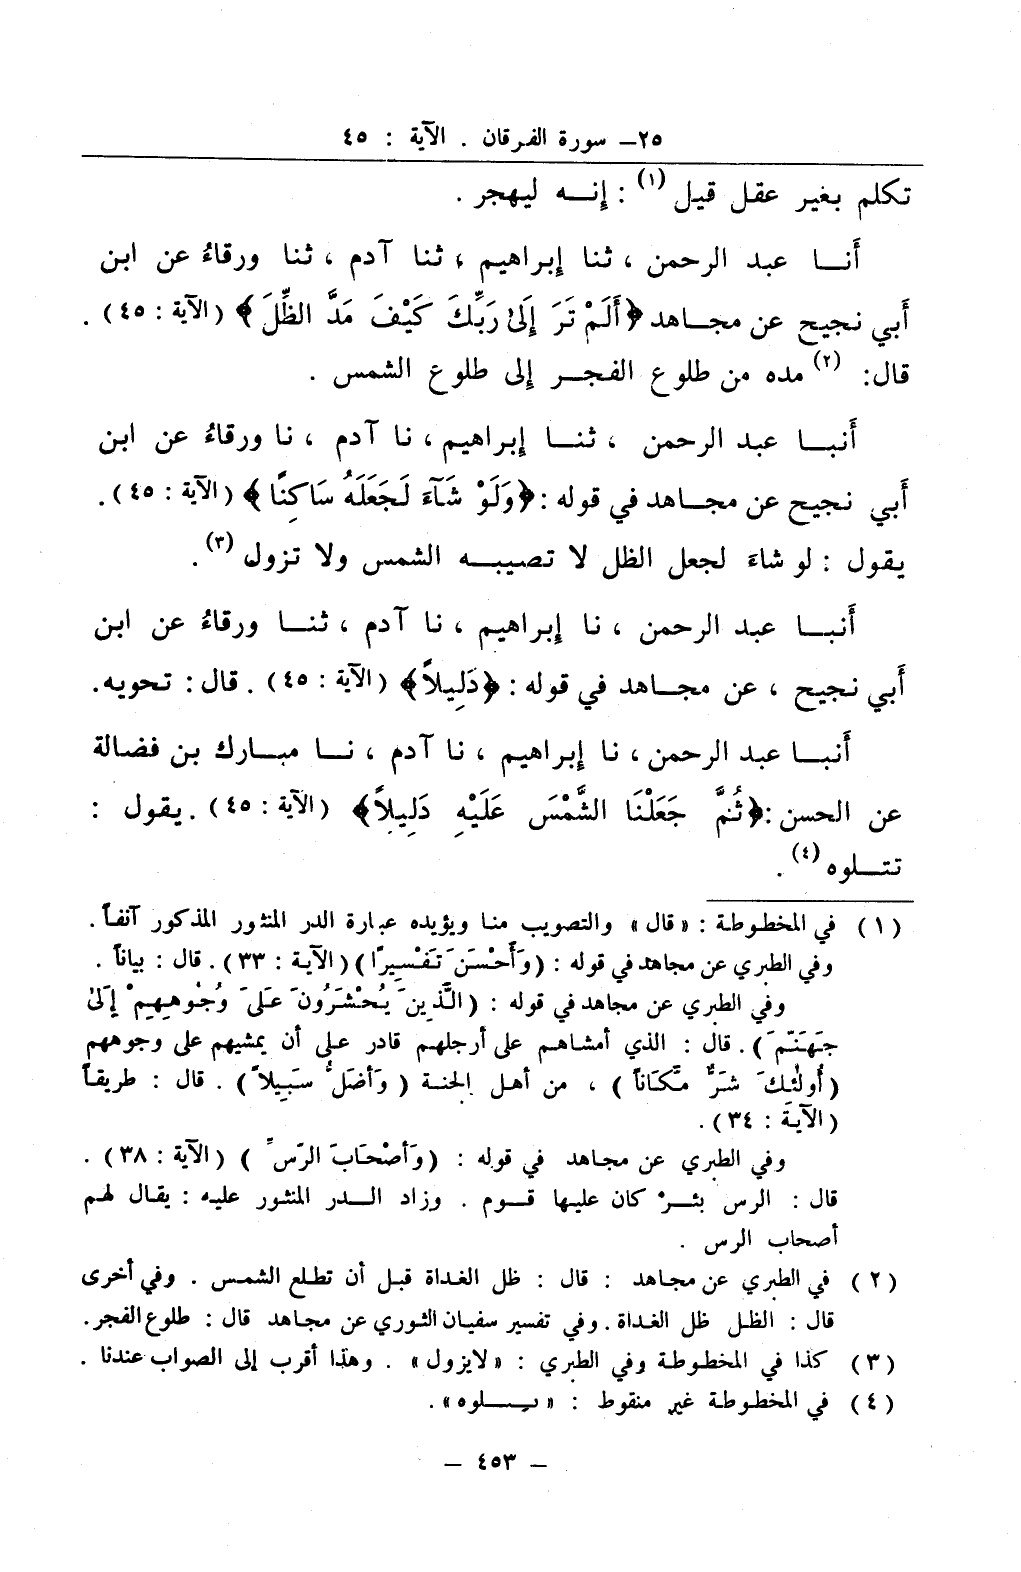 ٢٥ــ سورة الفرقان . الآية : ٤٥
تكلم بغير عقل قيل (١) : إنــه ليهجر .
أَنــا عبد الرحمن ، ثنا إبراهيم ، ثنا آدم ، ثنا ورقاءُ عن ابن
أَبي نجيح عن مجـاهد ﴿أَلَمْ تَرَ إِلَىٰ رَبِّكَ كَيْفَ مَدَّ الظِّلَ﴾ (الآية : ٤٥) .
قال: (٢) مده من طلوع الفجــر إلى طلوع الشمس .
أَنبــا عبد الرحمن ، ثنــا إبراهيم ، نا آدم ، نا ورقاءُ عن ابن
أَبي نجيح عن مجـاهد في قوله : ﴿وَلَوْ شَآءَ لَجَعَلَهُ سَاكِنًا﴾ (الآية : ٤٥) .
يقول : لو شاءَ لجعل الظل لا تصيبــه الشمس ولا تزول (٣) .
أَنبــا عبد الرحمن ، نا إبراهيم ، نا آدم ، ثنــا ورقاءُ عن ابن
أَبي نجيح ، عن مجـاهد في قوله : ﴿دَلِيلاً﴾ (الآية : ٤٥) . قال : تحويه.
أَنبــا عبد الرحمن ، نا إبراهيم ، نا آدم ، نــا مبـارك بن فضالة
عن الحسن :﴿ثُمَّ جَعَلْنَا الشَّمْسَ عَلَيْهِ دَلِيلاً﴾ (الآية : ٤٥) . يقول :
تتــلوه (٤) .
(١) في المخطوطة : «قال» والتصويب منا ويؤيده عبارة الدر المنثور المذكور آنفاً .
وفي الطبري عن مجاهد في قوله : (وَأَحْسَنَ تَفْسِيرًا) (الآية : ٣٣) . قال : بياناً .
وفي الطبري عن مجاهد في قوله : (الَّذِينَ يُحْشَرُونَ عَلَىٰ وُجُوهِهِمْ إِلَىٰ
جَهَنَّمَ) . قال : الذي أمشاهم على أرجلهم قادر على أن يمشيهم على وجوههم
(أُولَٰئِكَ شَرٌّ مَّكَانًا) ، من أهل الجنة (وَأَضَلُّ سَبِيلاً) . قال : طريقاً
(الآية : ٣٤) .
وفي الطبري عن مجاهد في قوله : (وَأَصْحَابَ الرَّسِّ) (الآية : ٣٨) .
قال : الرس بئــرٌ كان عليها قــوم . وزاد الــدر المنثور عليه : يقال لهم
أصحاب الرس .
(٢) في الطبري عن مجاهد : قال : ظل الغداة قبل أن تطلع الشمس . وفي أخرى
قال : الظل ظل الغداة . وفي تفسير سفيان الثوري عن مجاهد قال : طلوع الفجر.
(٣) كذا في المخطوطة وفي الطبري : «لا يزول» . وهذا أقرب إلى الصواب عندنا .
(٤) في المخطوطة غير منقوط : «ٮـــلوه» .
ــ ٤٥٣ ــ